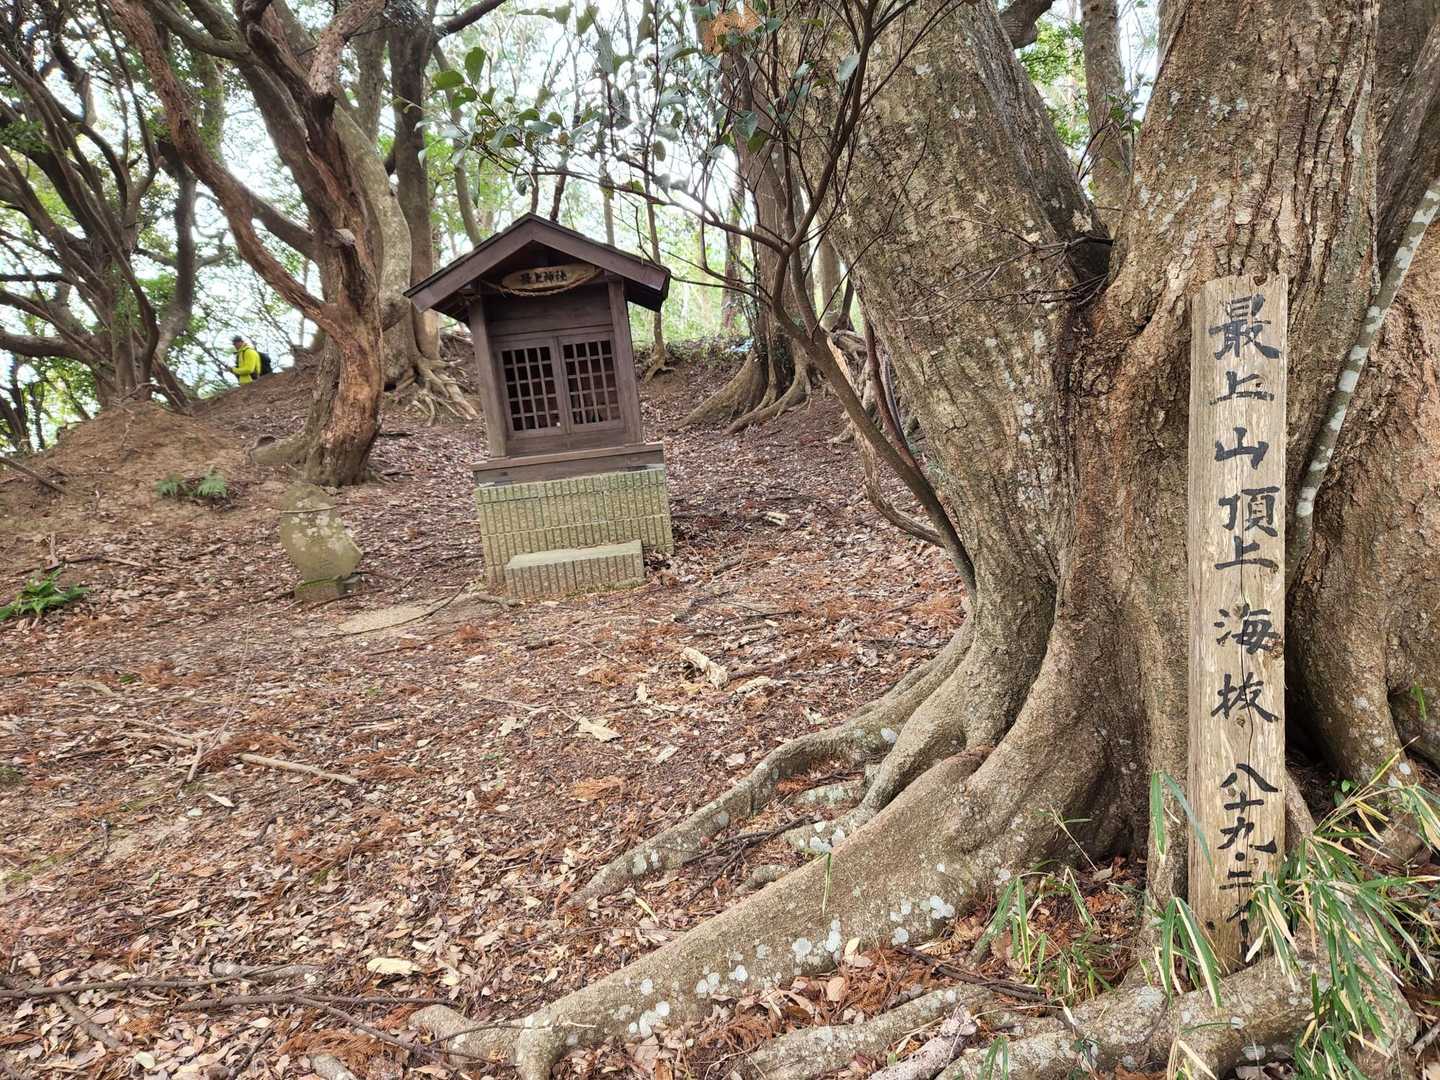 最上神社
最上山頂上 海抜 八十九・二